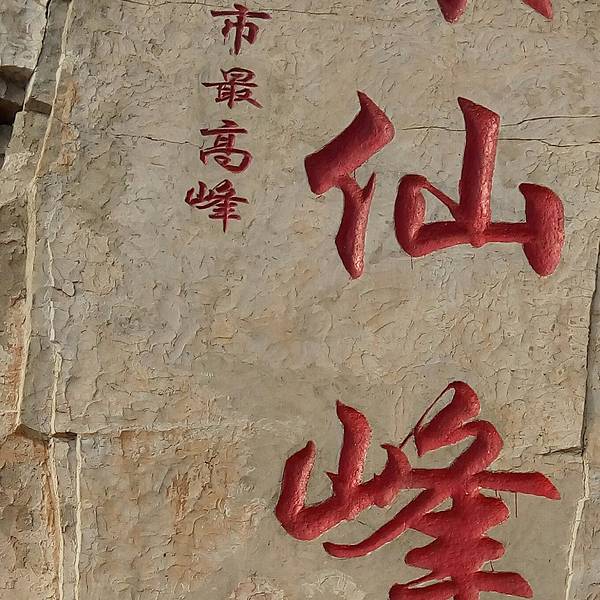 仙峰
市最高峰